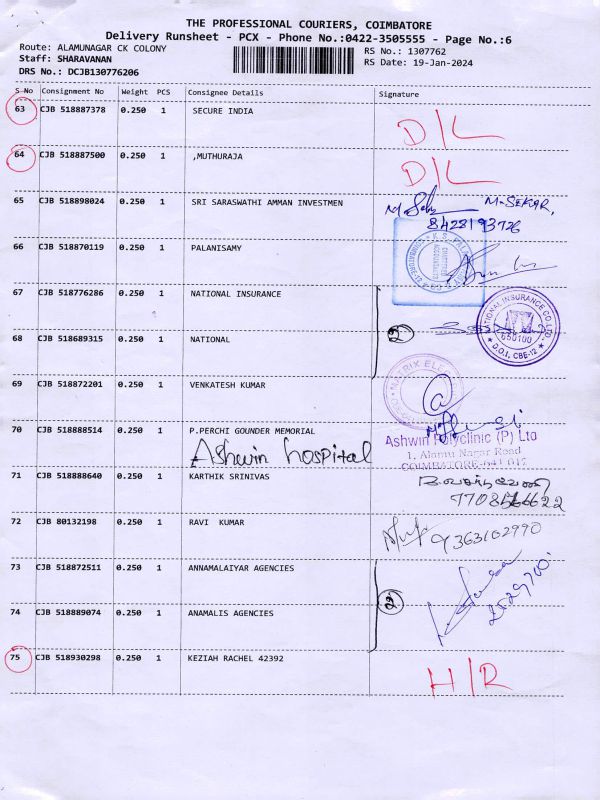 THE PROFESSIONAL COURIERS, COIMBATORE
Delivery Runsheet - PCX - Phone No.:0422-3505555 - Page No.:6
Route: ALAMUNAGAR CK COLONY RS No.: 1307762
Staff: SHARAVANAN RS Date: 19-Jan-2024
DRS No.: DCJB130776206
S No Consignment No Weight PCS Consignee Details Signature
63 CJB 518887378 0.250 1 SECURE INDIA D/L
64 CJB 518887500 0.250 1 ,MUTHURAJA D/L
65 CJB 518898024 0.250 1 SRI SARASWATHI AMMAN INVESTMEN M. SEKAR,
8428193726
66 CJB 518870119 0.250 1 PALANISAMY
CHARTERED
ACCOUNTANTS
67 CJB 518776286 0.250 1 NATIONAL INSURANCE
NATIONAL INSURANCE CO LTD
650100
D.O.I, CBE-12
68 CJB 518689315 0.250 1 NATIONAL 2
69 CJB 518872201 0.250 1 VENKATESH KUMAR
MATRIX
70 CJB 518888514 0.250 1 P.PERCHI GOUNDER MEMORIAL
Ashwin hospital
Ashwin Polyclinic (P) Ltd
1, Alamu Nagar Road
COIMBATORE-641 012
71 CJB 518888640 0.250 1 KARTHIK SRINIVAS
72 CJB 80132198 0.250 1 RAVI KUMAR 9363102990
73 CJB 518872511 0.250 1 ANNAMALAIYAR AGENCIES
74 CJB 518889074 0.250 1 ANAMALIS AGENCIES 2
75 CJB 518930298 0.250 1 KEZIAH RACHEL 42392 H/R